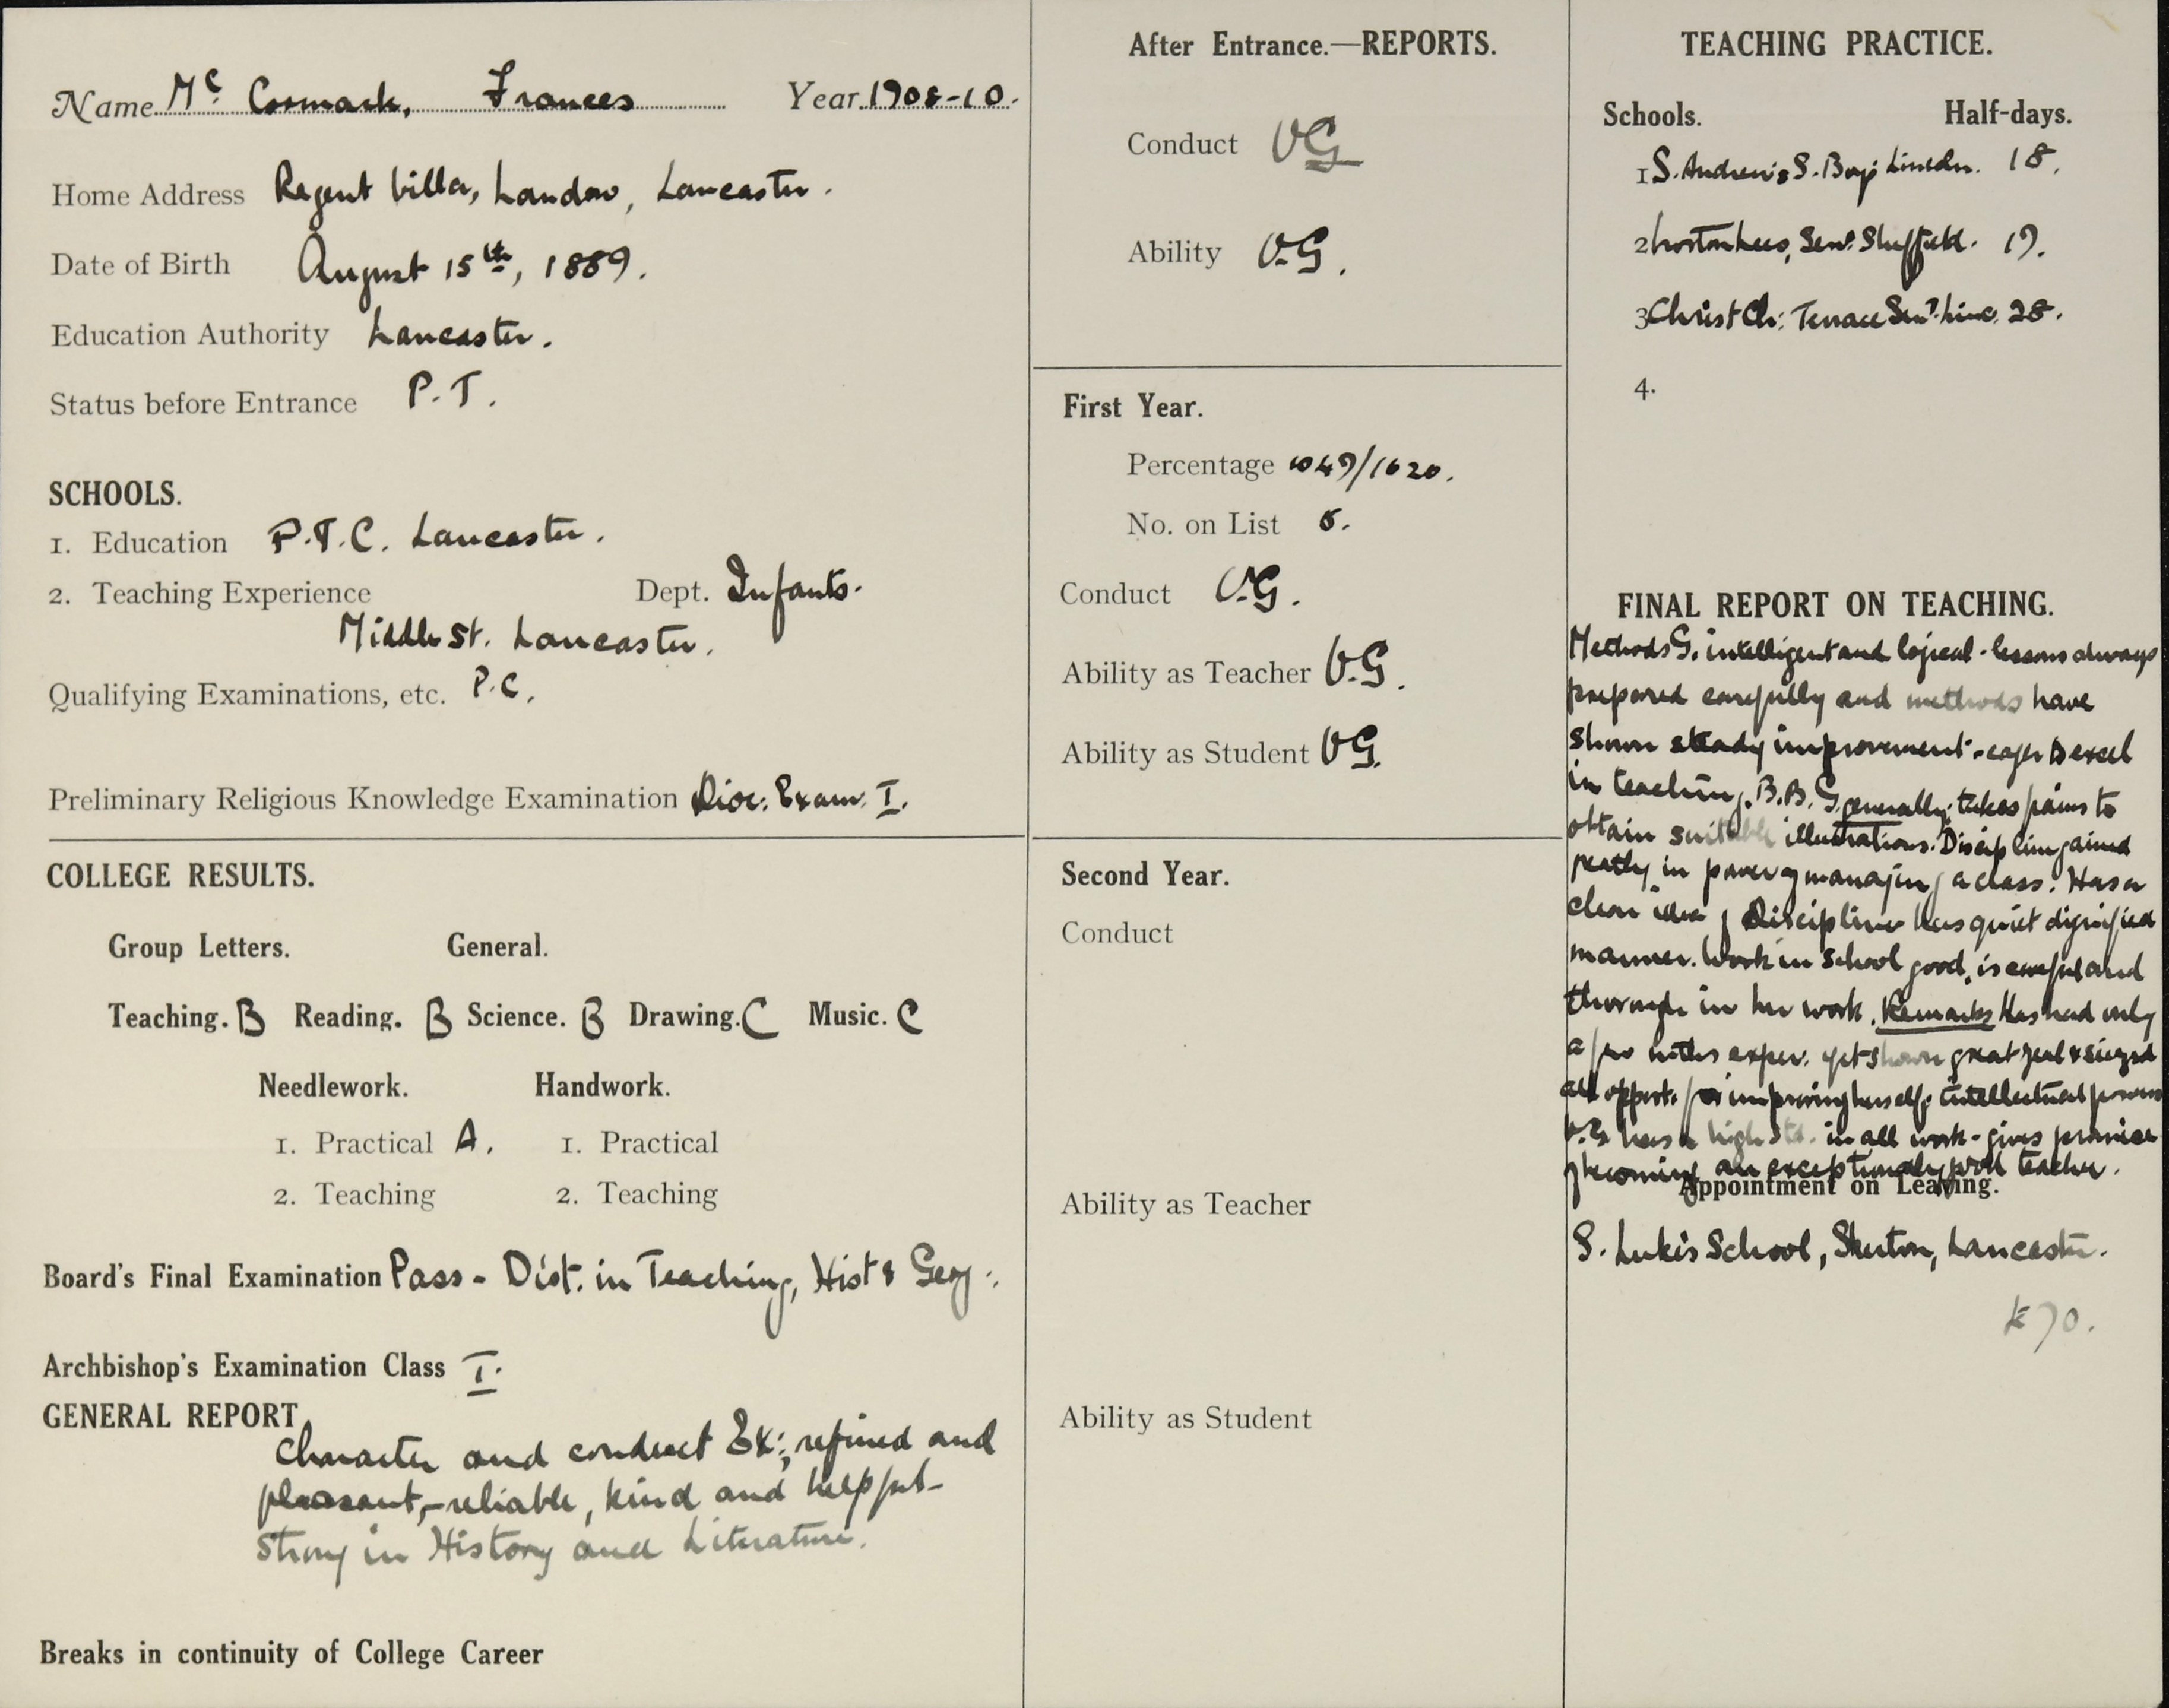 Name Mc Cormack, Frances Year 1908-10.
Home Address Regent Villa, Landow, Lancaster.
Date of Birth August 15th, 1889.
Education Authority Lancaster.
Status before Entrance P.T.
SCHOOLS.
1. Education P.T.C. Lancaster.
2. Teaching Experience Dept. Infants.
Middle St. Lancaster.
Qualifying Examinations, etc. P.C.
Preliminary Religious Knowledge Examination Dioc. Exam: I.
COLLEGE RESULTS.
Group Letters. General.
Teaching. B Reading. B Science. B Drawing. C Music. C
Needlework. Handwork.
1. Practical A. 1. Practical
2. Teaching 2. Teaching
Board's Final Examination Pass - Dist. in Teaching, Hist & Geog:.
Archbishop's Examination Class I.
GENERAL REPORT
Character and conduct Ex:, refined and
pleasant, - reliable, kind and helpful -
Strong in History and Literature.
Breaks in continuity of College Career
After Entrance.—REPORTS.
Conduct VG
Ability V.G.
First Year.
Percentage 1049/1620.
No. on List 5.
Conduct V.G.
Ability as Teacher V.G.
Ability as Student VG.
Second Year.
Conduct
Ability as Teacher
Ability as Student
TEACHING PRACTICE.
Schools. Half-days.
1 S. Andrew's S. Boys Lincoln. 18.
2 Lees, Senr. Sheffield. 19.
3 Christ Ch: Terrace Senr. Linc. 28.
4.
FINAL REPORT ON TEACHING.
Methods G. intelligent and logical - lessons always
prepared carefully and methods have
shown steady improvement - eager to excel
in teaching. B.B. G generally; takes pains to
obtain suitable illustrations. Discipline gained
greatly in power of managing a class. Has a
clear idea of Discipline has quiet dignified
manner. Work in School good, is careful and
thorough in her work. Remarks Has had only
a few mths exper. yet shown great zeal & seized
all opport. for improving herself; intellectual powers
V.G has a high std. in all work - gives promise
of becoming an exceptionally good teacher.
Appointment on Leaving.
S. Luke's School, Skerton, Lancaster.
£70.